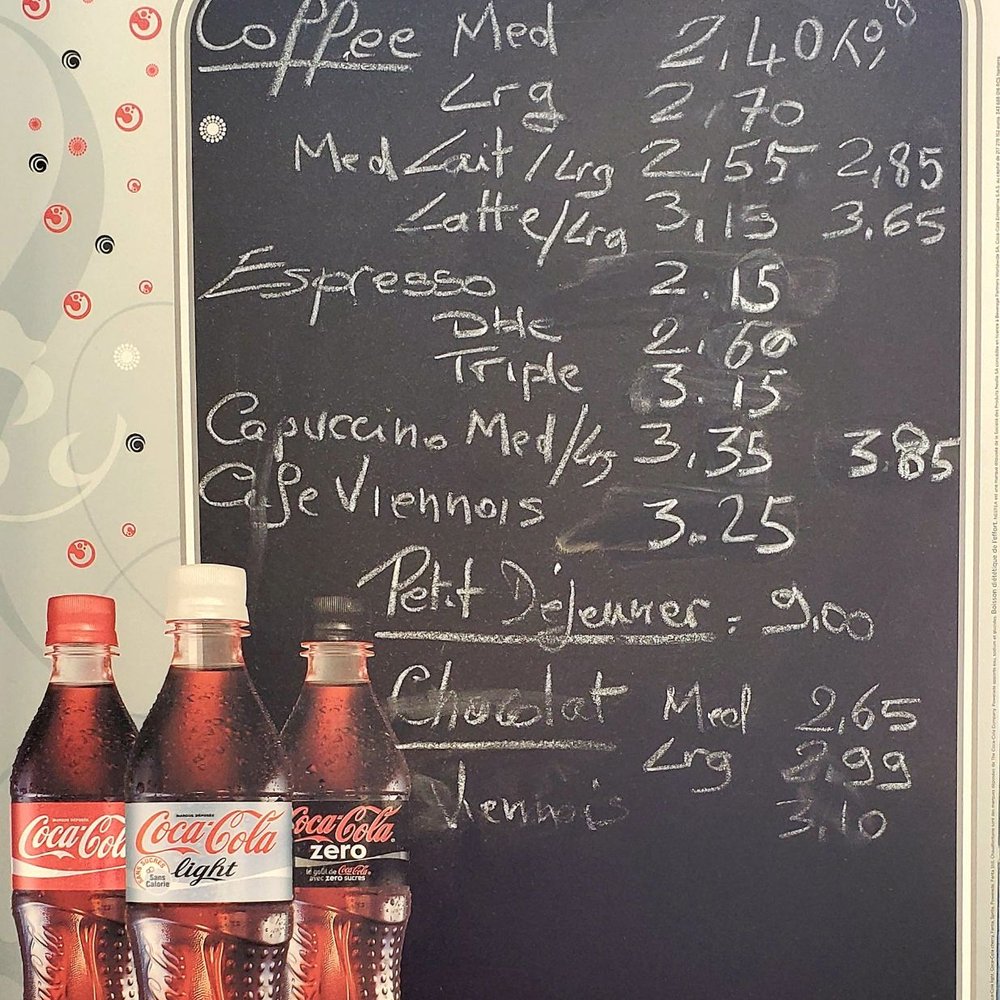 Coffee Med 2,40
Lrg 2,70
Med Lait/Lrg 2,55 2,85
Latte/Lrg 3,15 3.65
Espresso 2.15
Dble 2.60
Triple 3.15
Capuccino Med/Lrg 3.35 3.85
Cafe Viennois 3.25
Petit Déjeuner = 9,00
Chocolat Med 2,65
Lrg 2,99
Viennois 3,10
Coca-Cola
MARQUE DÉPOSÉE
Coca-Cola
light
SANS SUCRES
Sans
Calorie
Coca-Cola
zero
le goût de Coca-Cola
avec zero sucres